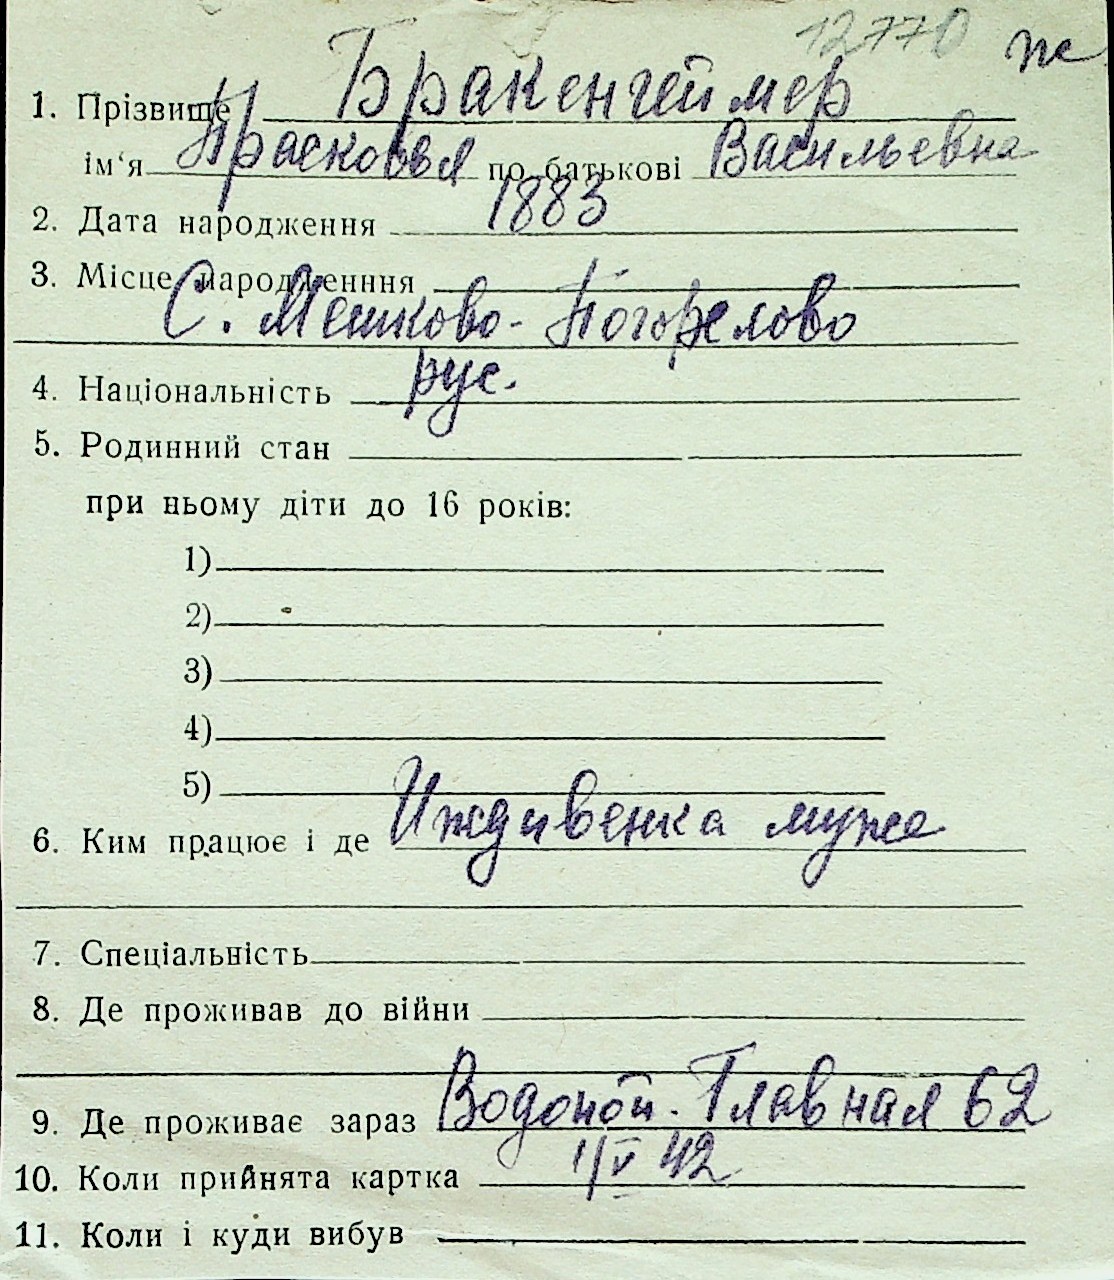 12770 ж
1. Прізвище Бракенгеймер
ім'я Прасковья по батькові Васильевна
2. Дата народження 1883
3. Місце народженння
С. Мешково-Погорелово
4. Національність рус.
5. Родинний стан
при ньому діти до 16 років:
1)
2)
3)
4)
5)
6. Ким працює і де Иждивенка мужа
7. Спеціальність
8. Де проживав до війни
9. Де проживає зараз Водопой. Главная 62
10. Коли прийнята картка 1/V 42
11. Коли і куди вибув